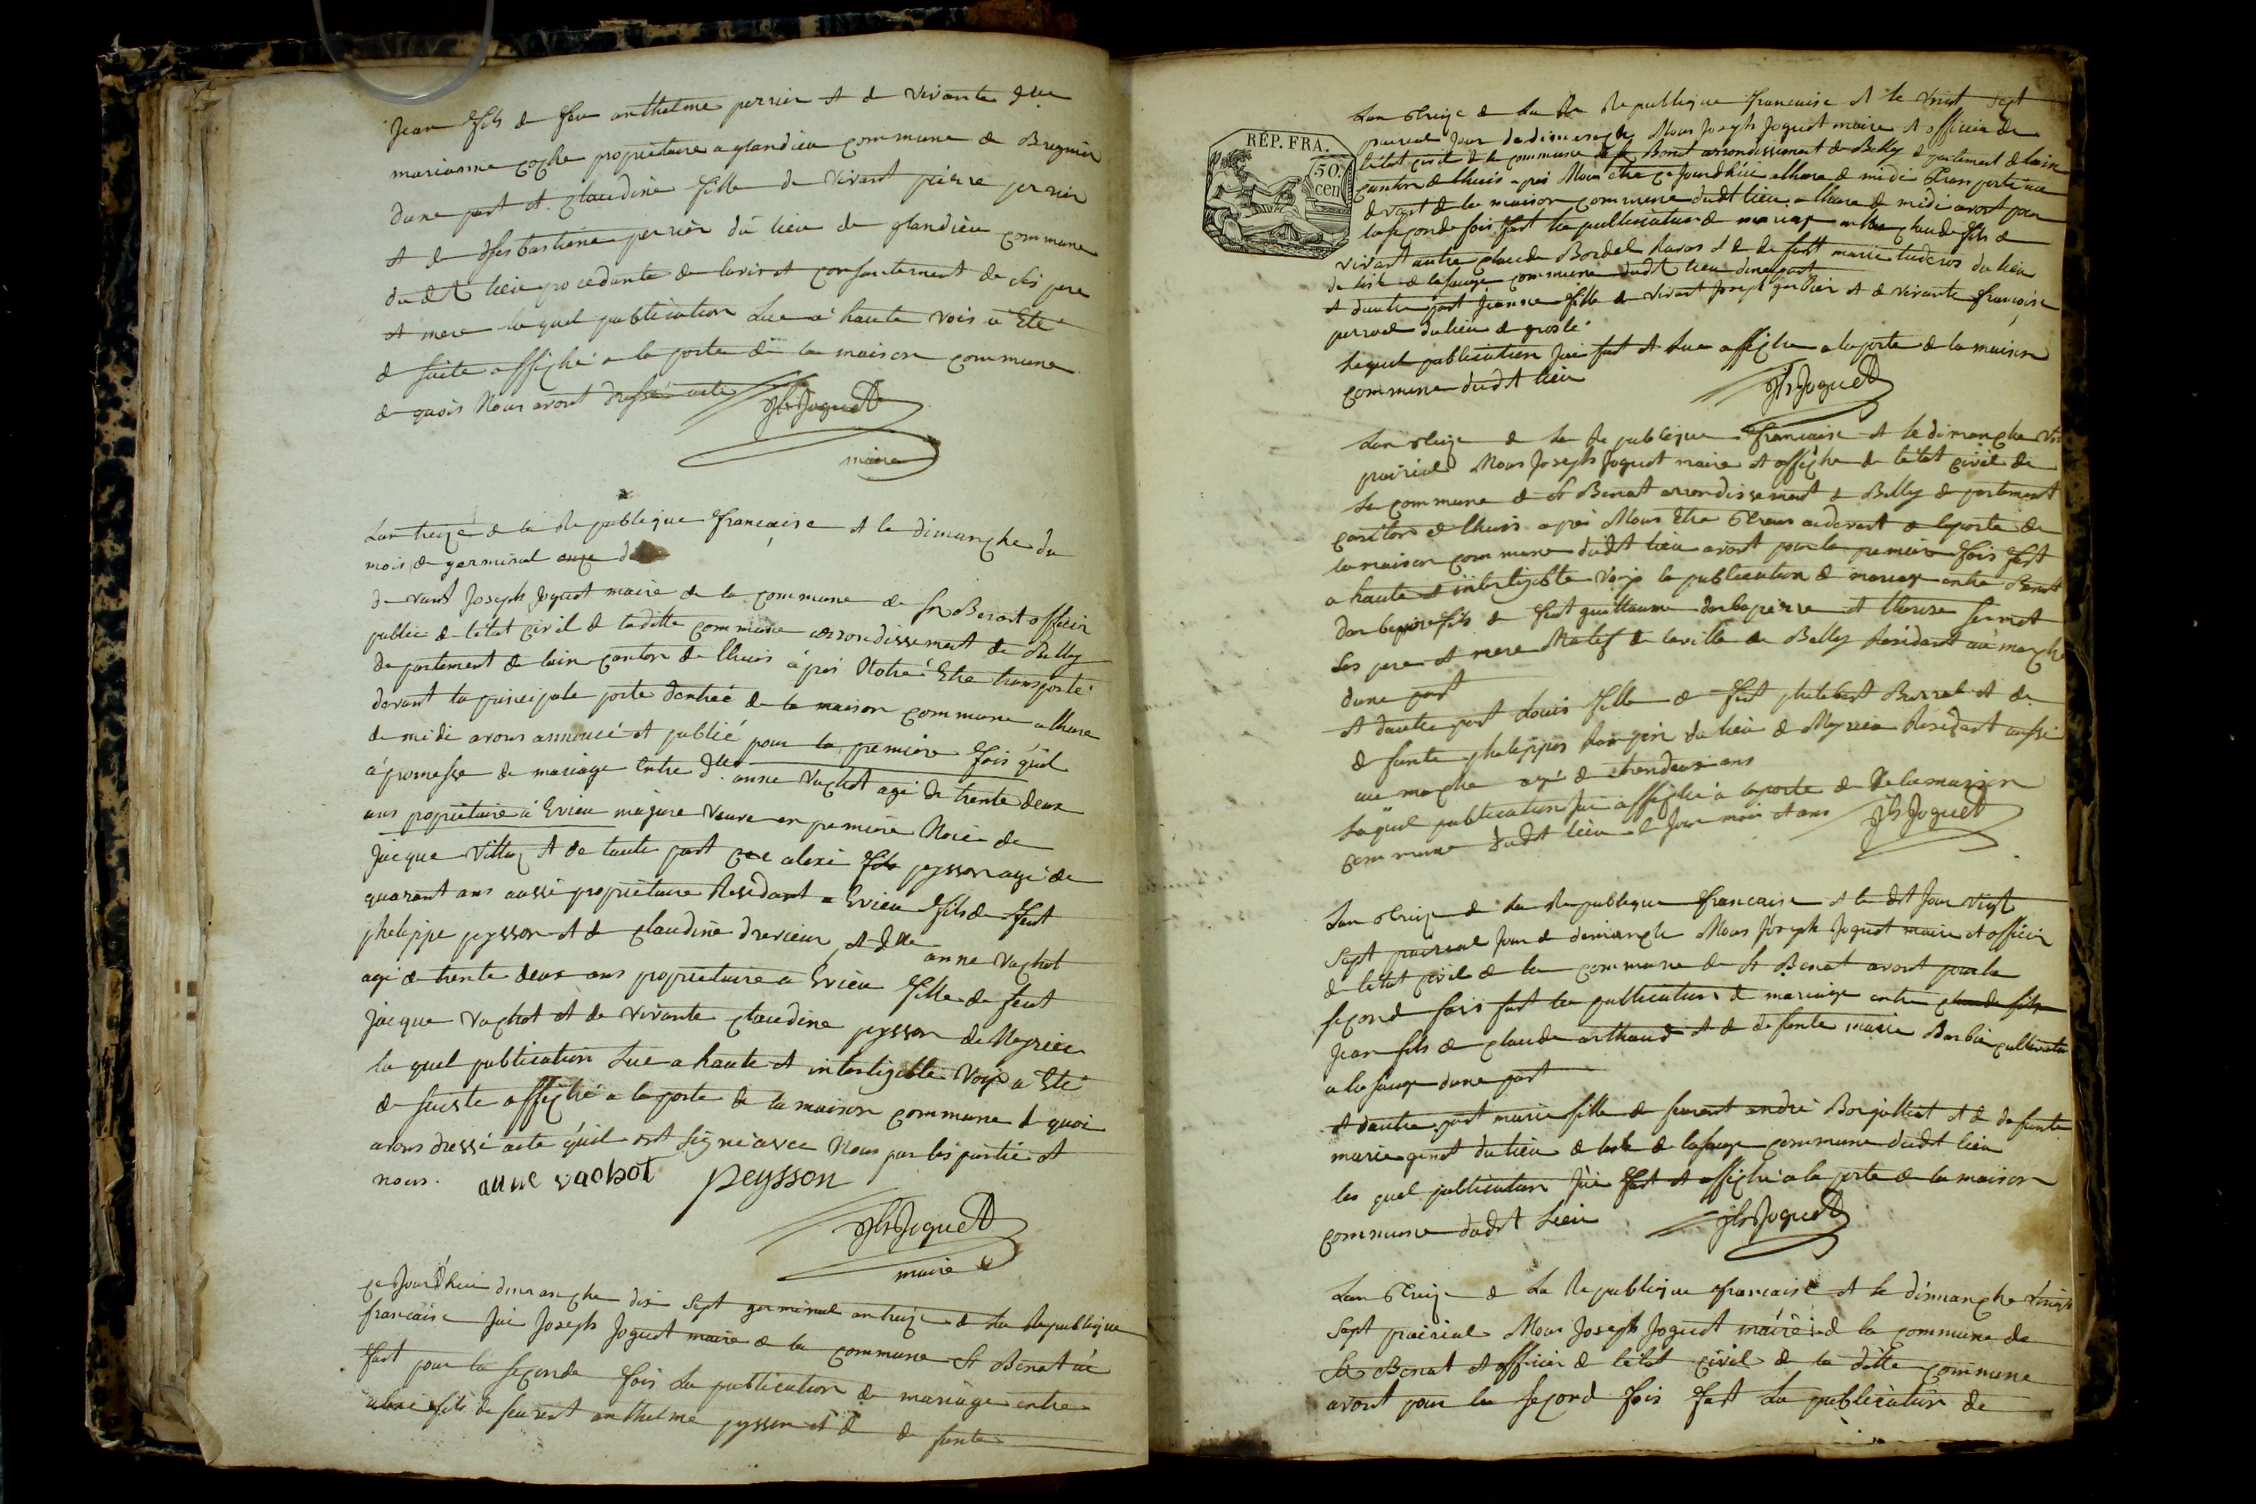 Jean fils de feu anthelme perrier et de vivante dlle
marianne coche propriétaire a glandieu commune de Bregnier
dune part et claudine fille de vivant pierre perrier
et de Sesbastiene perrier du lieu de glandieu commune
dudt lieu procedante de lavis et consantement de ses pere
et mere la quel publication Lue a haute vois a Eté
de suite affiché a la porte de la maison commune
de quois Nous avont dressé acte Jh Joguet
maire
Lan treize de la Republique française et le dimanche du
mois de germinal
de vant Joseph Joguet maire de la commune de St Benoit officier
public de letat civil de laditte commune arrondissement de Belley
departement de lain canton de lhuis a pres Notre Etre transporté
devant la principale porte dentreé de la maison commune a lheure
de midi avons annoncé et publié pour la premiere fois quil
a promesse de mariage Entre dlle anne Vachot agé de trente deux
ans propriétaire a Evieu majure veuve en premiere Noce de
Jacque Vittoz et de taute part alexi fils peysson agé de
quarant ans aussi propriétaire Residant a Evieu fils de feut
phelippe peysson et de claudine drevieux et dlle anne Vachot
agé de trente deux ans propriétaire a Evieu fille de feut
Jacque Vachot et de vivante claudine peysson de Meyrieu
la quel publication Lue a haute et inteligible Voix a Eté
de suiste affiché a la porte de la maison commune de quoi
avons dressé acte quil ont signé avec Nous par les partie et
nous. anne vachot peysson
Jh Joguet
maire
ce Jourdhui dimanche dix sept germinal an treize de La Republique
francaise Jai Joseph Joguet maire de la commune St Benat ai
fait pour la segonde fois La publication de mariage entre
alexi fils de feu anthelme peysson et de de funte
RÉP. FRA.
50.
cen
Lan treize de La Republique francaise et le vint sept
prairial Jour de dimenche Nous Joseph Joguet maire et officier de
letat civil de la commune de St Benat arrondissement de Belley departement de lain
canton de lhuis apres Nous etre ce Jourdhui a lheure de midi transporté au
devant de la maison commune dudt lieu a lheure de midi avont pour
la segonde fois fait la publication de mariage entre claude fils de
vivant autre claude Bordel et de de funt marie du lieu
de lisle de la sauge commune dudt lieu dune part
et dautre part Jeanne fille de vivant Joseph gerbier et de vivante françoise
perraud du lieu de groslé
Laquel publication Jai fait et Lue affiche a la porte de la maison
commune dudt lieu Jh Joguet
Lan treize de La Republique francaise et le dimanche
prairial Nous Joseph Joguet maire et officier de letat civil de
La commune de St Benat arrondissement de Belley departement
canton de lhuis apres Nous Etre au devant de la porte de
la maison commune dudt lieu avont pour la premiere fois fait
a haute et inteligible Voix la publication de mariage entre Benoit
fils de feut guillaume et therese fernet
Ses pere et mere Natif de la ville de Belley Residant au
dune part
et dautre part Louis fille de feut philibert Burral et de
de funte phelippes du lieu de Meyrieu Residant aussi
au agé de ans
Laquel publication Jai affiché a la porte de de la maison
commune dudt lieu le Jour mois et ans Jh Joguet
Lan treize de La Republique francaise et le dt Jour vingt
sept prairial Jour de dimanche Nous Joseph Joguet maire et officier
de letat civil de la commune de St Benat avont pour la
segond fois fait la publication de mariage entre claude fils
Jean fils de claude arthaud et de de funte marie Barbier cultivateur
a la sauge dune part
et dautre part marie fille de feu andré Borjallet et de de funte
marie genet du lieu de de la sauge commune dudt lieu
la quel publication Jai fait et affiché a la porte de la maison
commune dudt Lieu Jh Joguet
Lan treize de La Republique francaise et le dimanche vingt
sept prairial Nous Joseph Joguet maire de la commune de
St Benat et officier de letat civil de la ditte commune
avont pour la segond fois fait La publication de